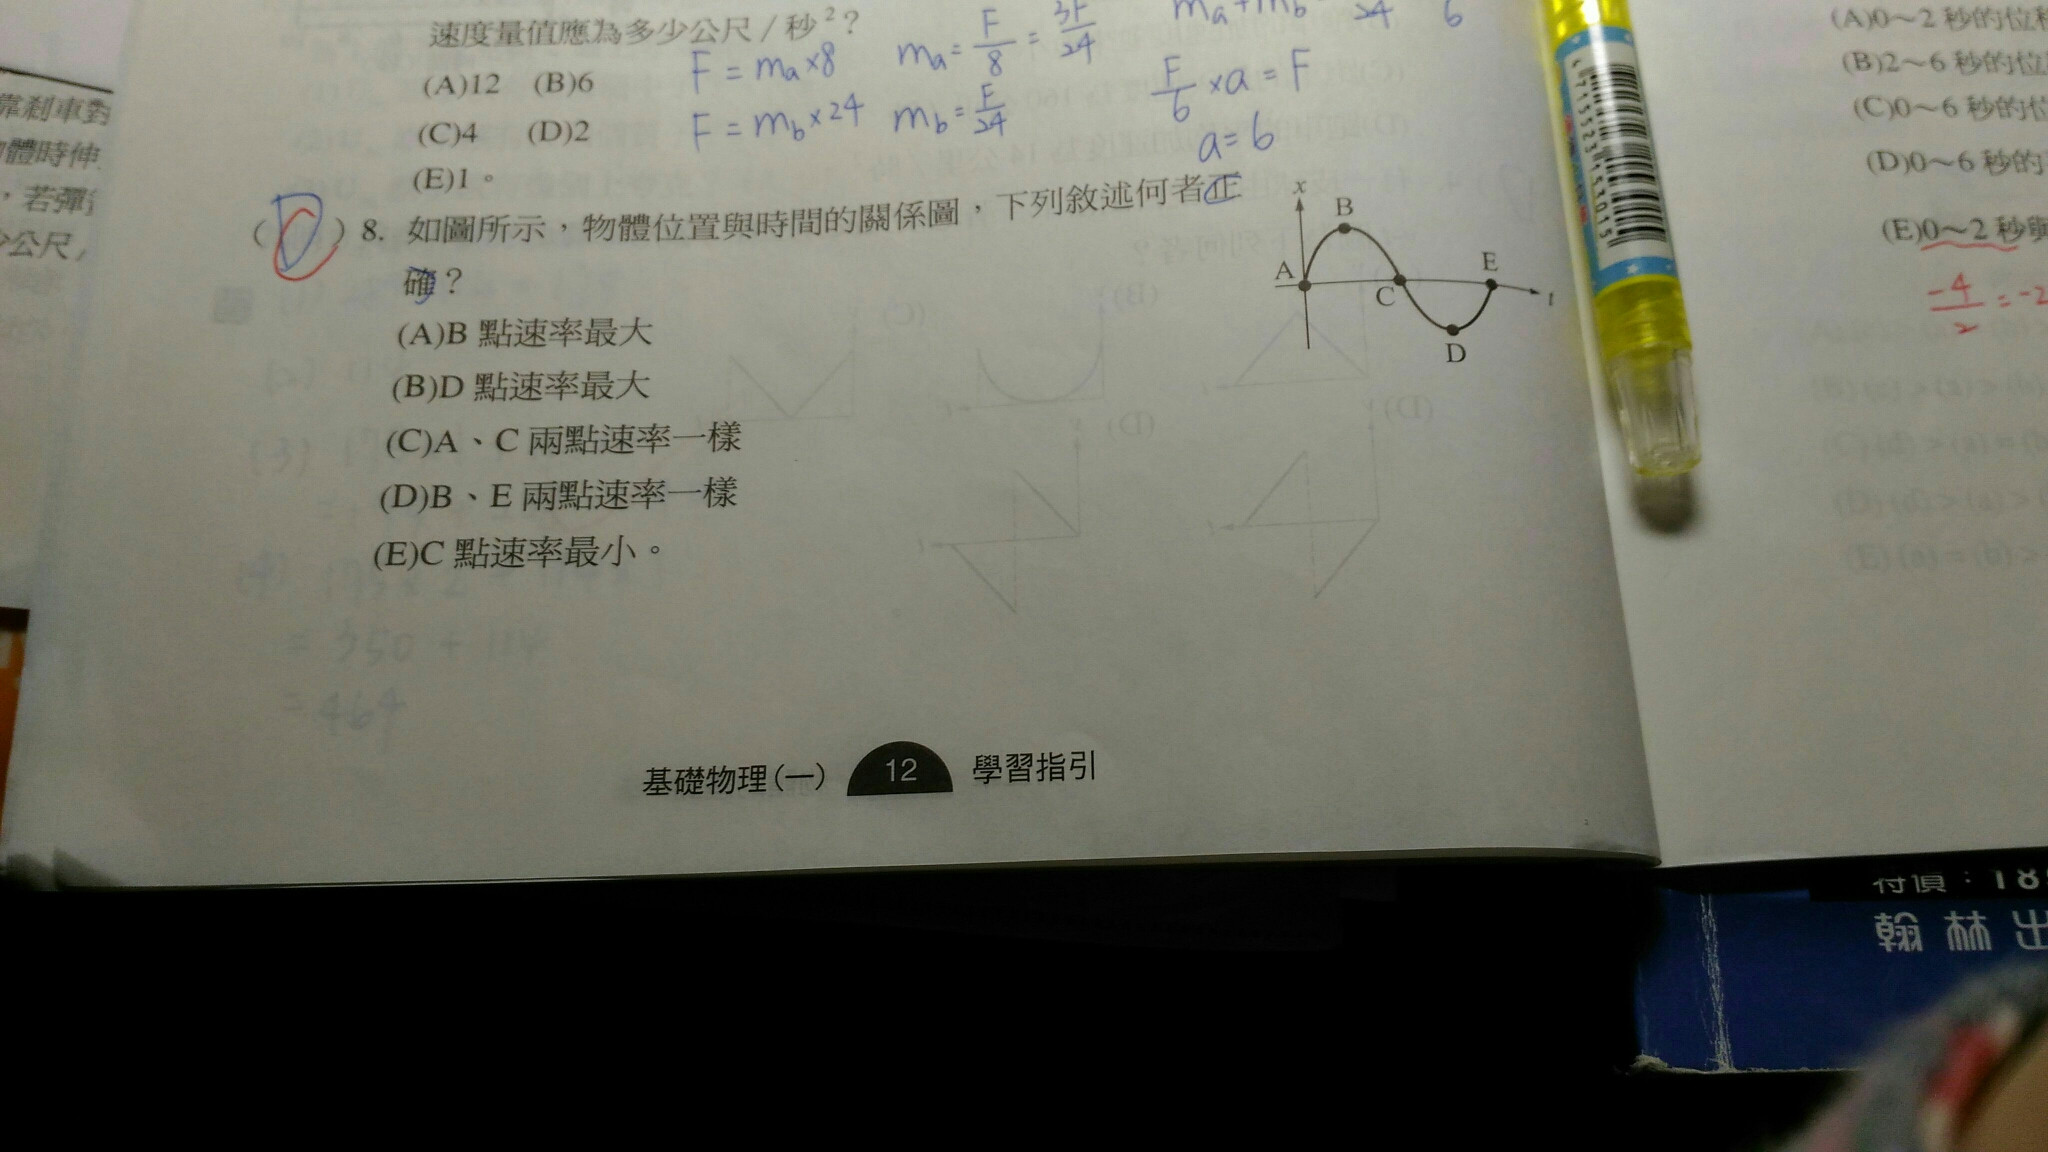 速度量值應為多少公尺/秒²？
(A)12 (B)6
(C)4 (D)2
(E)1。
F = ma×8
ma = F/8 = 3F/24
F = mb×24
mb = F/24
ma+mb
F/6 ×a = F
a=6
(D) 8. 如圖所示，物體位置與時間的關係圖，下列敘述何者正
確？
(A)B 點速率最大
(B)D 點速率最大
(C)A、C 兩點速率一樣
(D)B、E 兩點速率一樣
(E)C 點速率最小。
x
B
A
C
E
t
D
基礎物理(一) 12 學習指引
靠剎車對
物體時伸
，若彈
公尺/
47155234153015
(A)0～2 秒的位
(B)2～6 秒的位
(C)0～6 秒的位
(D)0～6 秒的
(E)0～2 秒與
-4/2 = -2
特價：18
翰林出